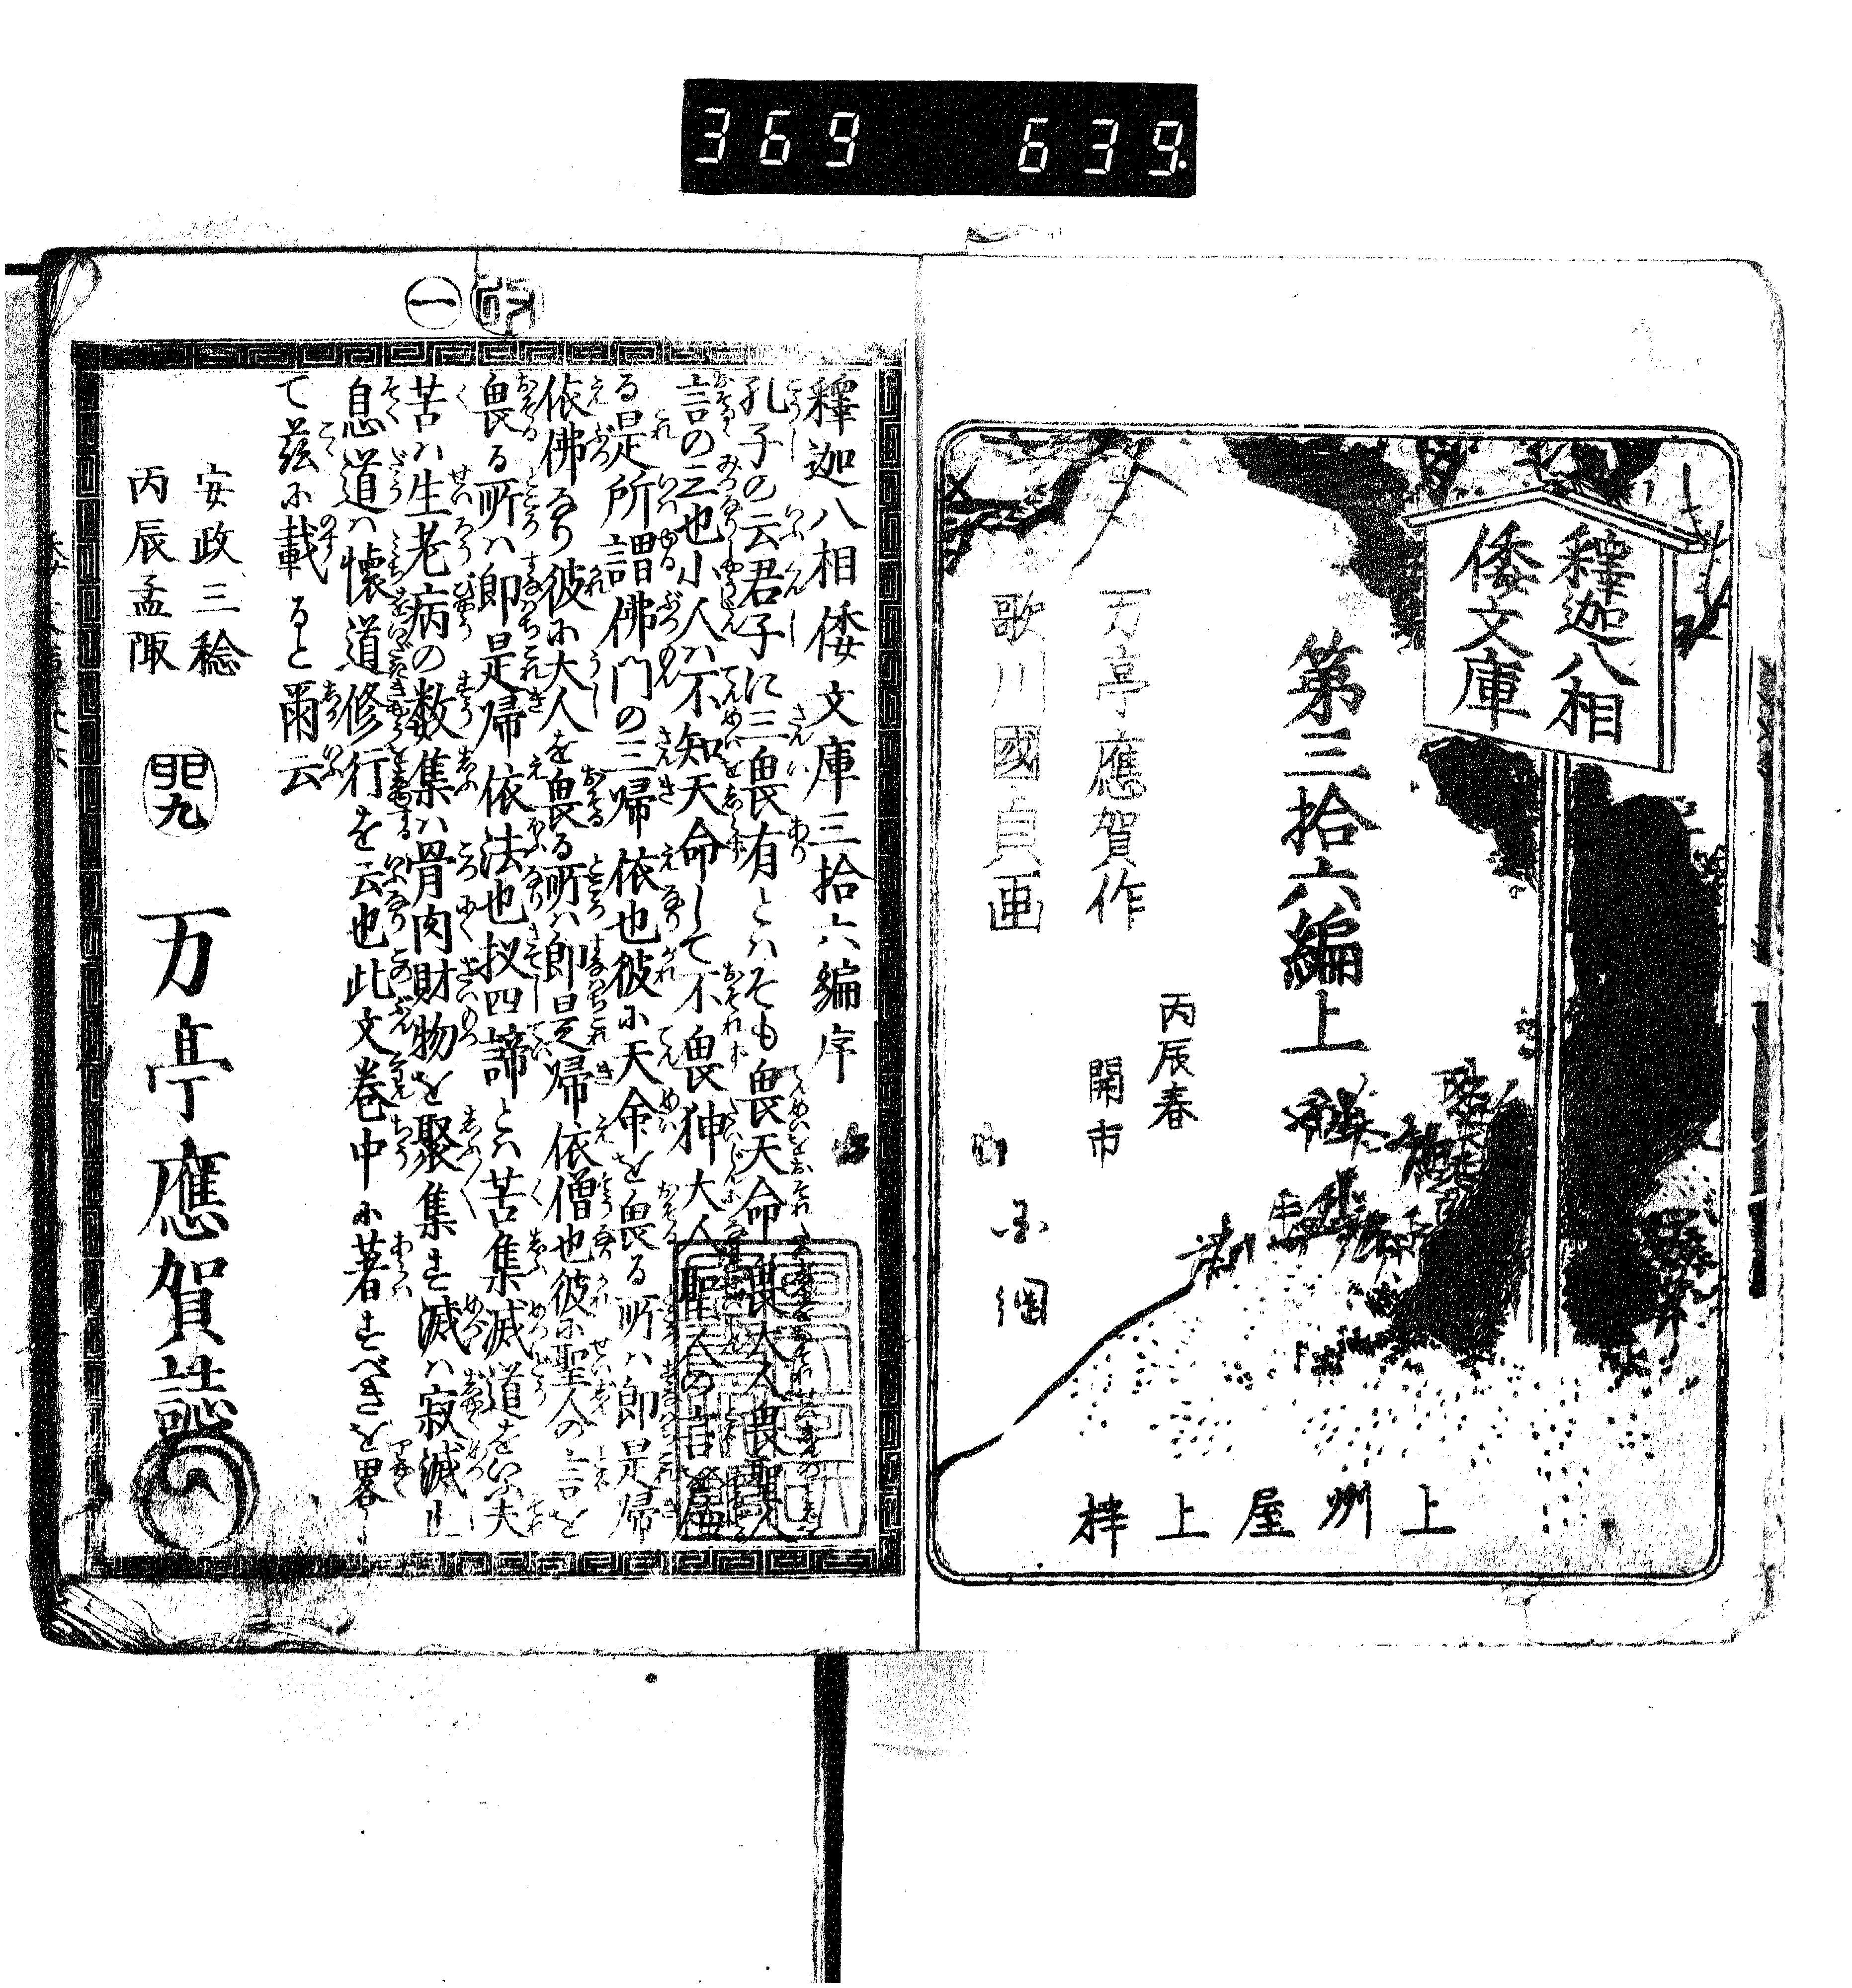 369 639.
釋迦八相
倭文庫
第三拾六編上
丙辰春
開市
万亭應賀作
歌川國貞画
上州屋上梓
釋迦八相倭文庫三拾六編序
孔子の云君子に三畏有とハそも畏天命畏大人畏聖人
言の三也小人ハ不知天命して不畏狎大人聖人の言侮
る是所謂佛門の三帰依也彼に天命を畏る所ハ即是帰
依佛なり彼に大人を畏る所ハ即是帰依僧也彼に聖人の言を
畏る所ハ即是帰依法也扨四諦とハ苦集滅道をいふ夫
苦ハ生老病の数集ハ骨肉財物を聚集す滅ハ寂滅止
息道ハ懐道修行を云也此文巻中に著すべきを畧し
て茲に載ると爾云
安政三稔
丙辰孟陬
万亭應賀誌
一
改